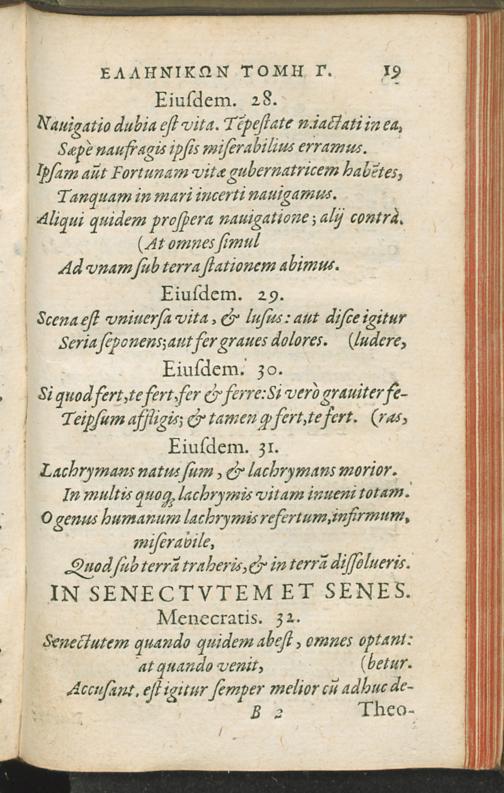 ΕΛΛΗΝΙΚΩΝ ΤΟΜΗ Γ. 19
Eiuſdem. 28.
Nauigatio dubia eſt vita. Tẽpeſtate n.iactati in ea,
Sæpè naufragis ipſis miſerabilius erramus.
Ipſam aũt Fortunam vitæ gubernatricem habẽtes,
Tanquam in mari incerti nauigamus.
Aliqui quidem proſpera nauigatione; alij contrà.
(At omnes ſimul
Ad vnam ſub terra ſtationem abimus.
Eiuſdem. 29.
Scena eſt vniuerſa vita, & luſus: aut diſce igitur
Seria ſeponens; aut fer graues dolores. (ludere,
Eiuſdem. 30.
Si quod fert, te fert, fer & ferre: Si verò grauiter fe-
Teipſum affligis; & tamen ꝙ fert, te fert. (ras,
Eiuſdem. 31.
Lachrymans natus ſum, & lachrymans morior.
In multis quoq; lachrymis vitam inueni totam.
O genus humanum lachrymis refertum, infirmum,
miſerabile,
Quod ſub terrã traheris, & in terrã diſſolueris.
IN SENECTVTEM ET SENES.
Menecratis. 32.
Senectutem quando quidem abeſt, omnes optant:
at quando venit, (betur.
Accuſant. eſt igitur ſemper melior cũ adhuc de-
B 2 Theo-